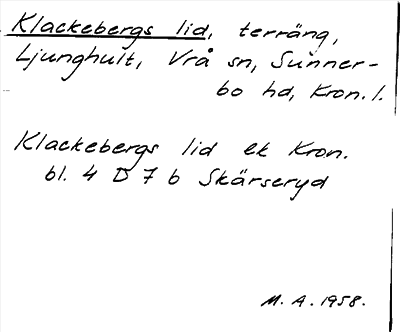 Klackebergs lid, terräng,
Ljunghult, Vrå sn, Sunner-
bo hd, Kron. l.
Klackebergs lid ek Kron.
bl. 4 D 7 b Skärseryd
M. A. 1958.